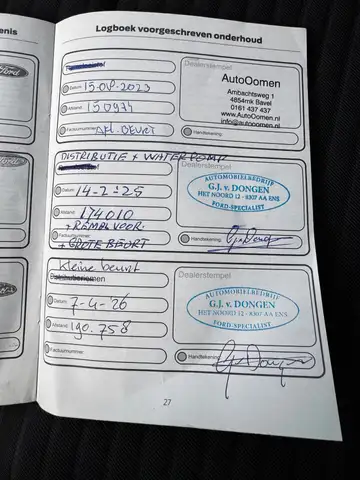 enis
Logboek voorgeschreven onderhoud
Ford
Datum: 15-08-2023
Afstand: 150934
Factuurnummer: AFL. BEURT
Dealerstempel
AutoOomen
Ambachtsweg 1
4854mk Bavel
0161 437 437
www.AutoOomen.nl
info@autooomen.nl
Handtekening:
DISTRIBUTIE + WATERPOMP
Datum: 14-2-25
Afstand: 174010
+ REMMEN VOOR.
Factuurnummer:
+ GROTE BEURT
AUTOMOBIELBEDRIJF
G.J. v. DONGEN
HET NOORD 12 - 8307 AA ENS
FORD-SPECIALIST
Handtekening:
Ford
kleine beurt
Datum: 7-4-26
Afstand: 190.758
Factuurnummer:
Dealerstempel
AUTOMOBIELBEDRIJF
G.J. v. DONGEN
HET NOORD 12 - 8307 AA ENS
FORD-SPECIALIST
Handtekening:
Ford
27